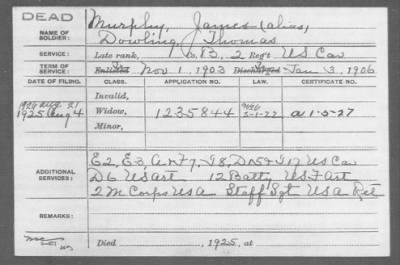 DEAD
NAME OF SOLDIER: Murphy, James (alias)
Dowling, Thomas
SERVICE: Late rank, Co. B, 2 Reg't US Cav
TERM OF SERVICE: Enlisted Nov 1, 1903 Discharged Jan 3, 1906
DATE OF FILING. CLASS. APPLICATION NO. LAW. CERTIFICATE NO.
Invalid,
1926 Aug. 21
1925 Aug 4 Widow, 1235844 5-1-22 a 1-5-27
Minor,
ADDITIONAL SERVICES: E2, E3, Art 7, US Cav
D6 US Art 12 Batty US F Art
2 M Corps USA Staff Sgt USA Ret
REMARKS:
Died , 1925, at